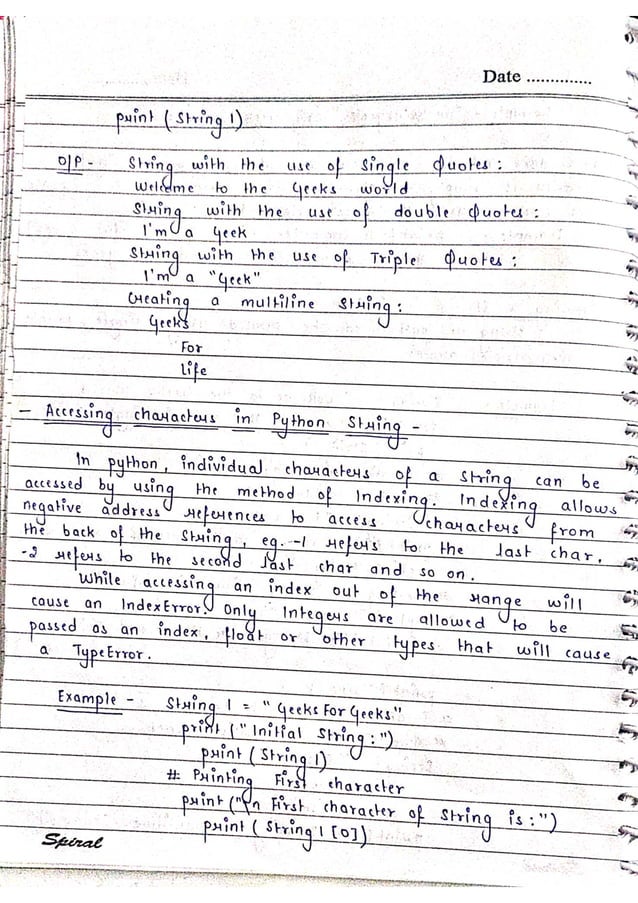 Date ..............
print (String 1)
O/P - String with the use of Single Quotes :
Welcome to the Geeks world
String with the use of double Quotes :
I'm a Geek
String with the use of Triple Quotes :
I'm a "Geek"
Creating a multiline String :
Geeks
For
Life
- Accessing characters in Python String -
In python, individual characters of a string can be
accessed by using the method of Indexing. Indexing allows
negative address references to access characters from
the back of the String, eg. -1 refers to the last char,
-2 refers to the second last char and so on.
While accessing an index out of the range will
cause an IndexError. Only Integers are allowed to be
passed as an index, float or other types that will cause
a TypeError.
Example - String 1 = "Geeks For Geeks"
print ("Initial String : ")
print (String 1)
# Printing First character
print ("\n First character of String is : ")
print (String 1 [0])
Spiral